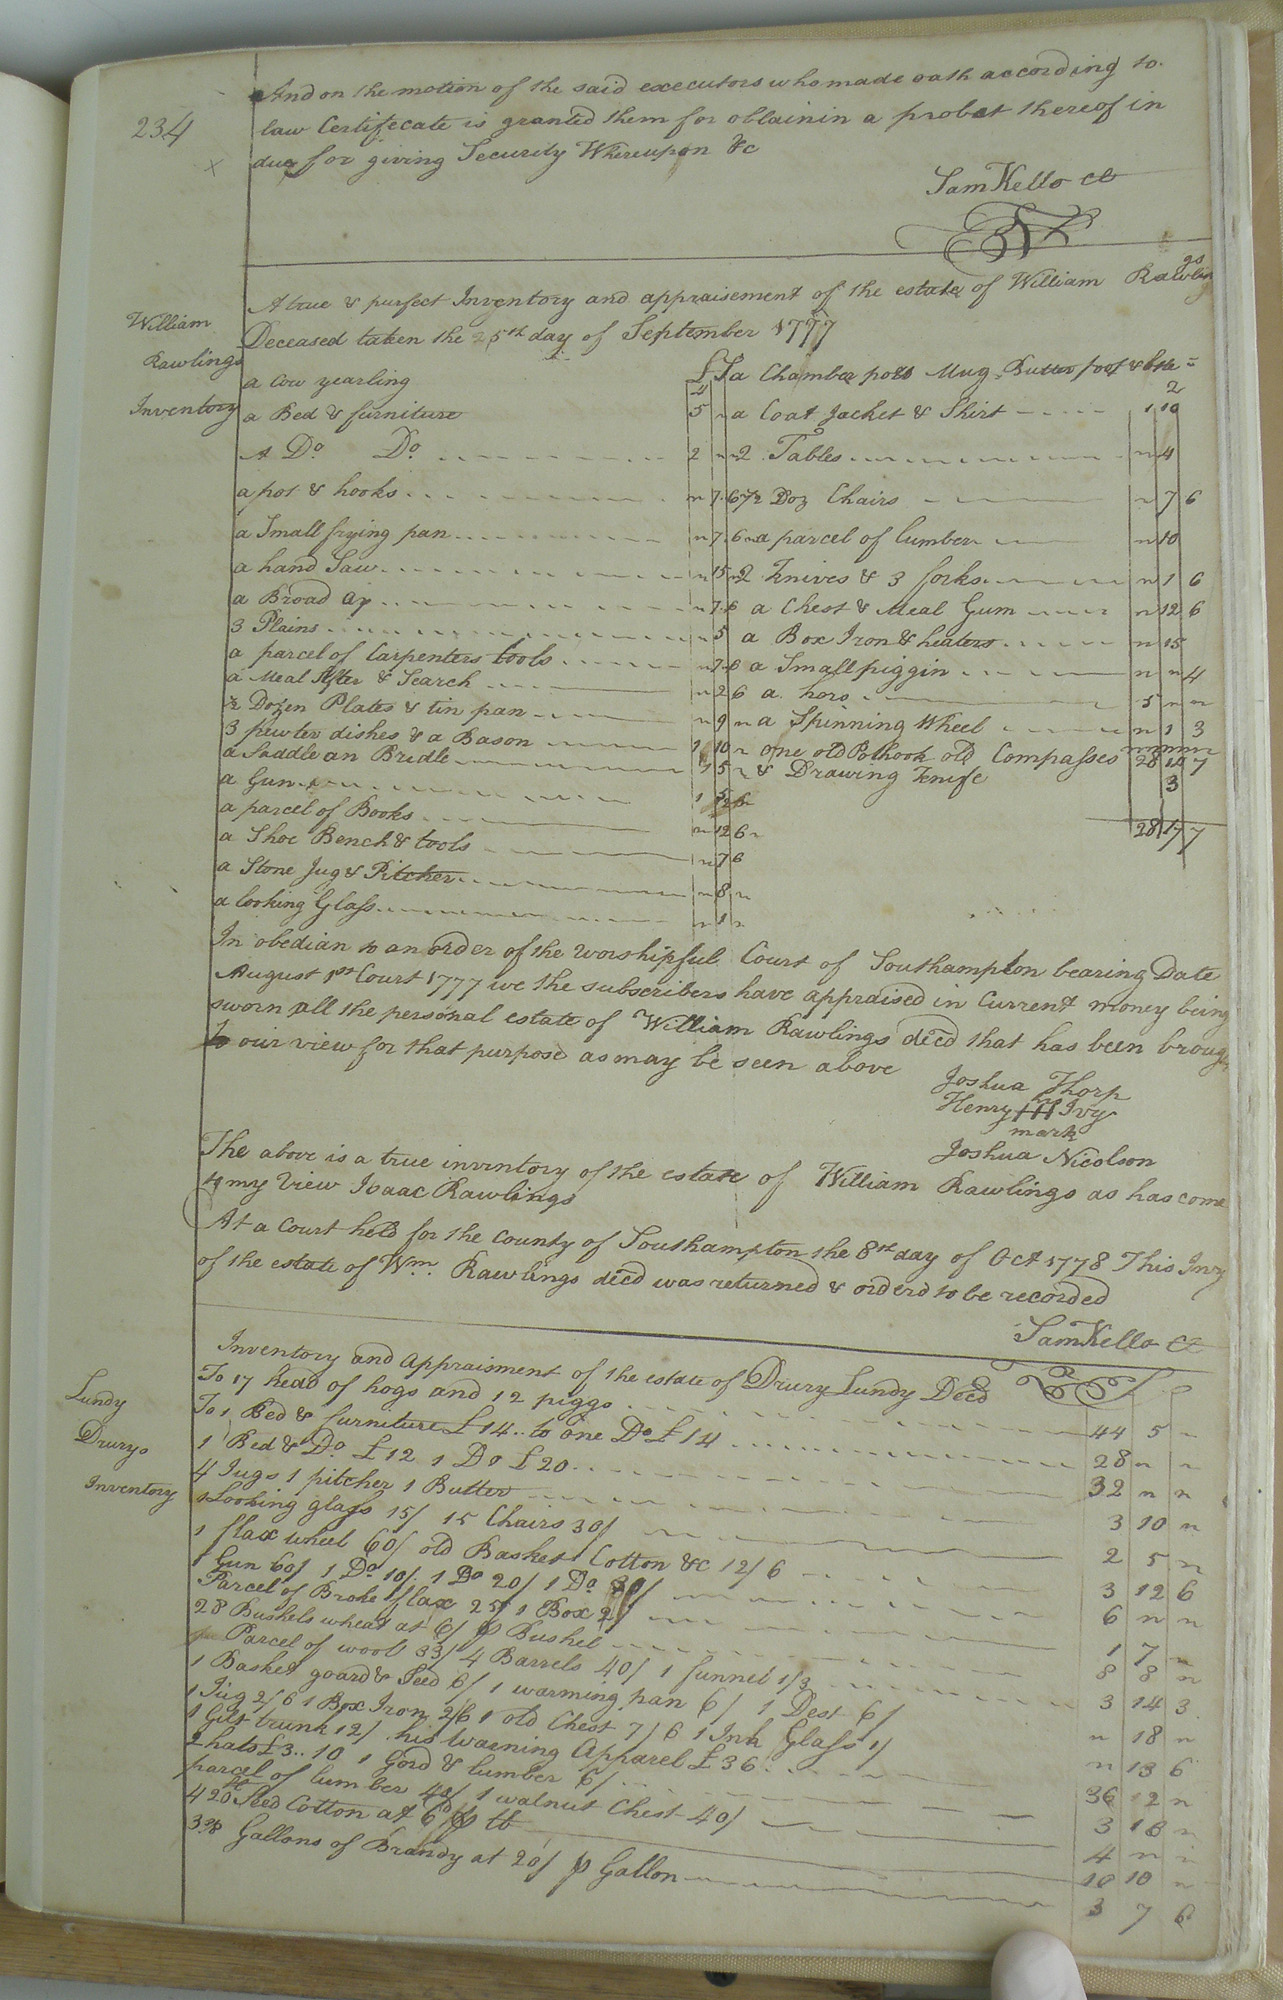 234
And on the motion of the said executors who made oath according to
law Certifecate is granted them for oblainin a probat thereof in
due for giving Security Whereupon &c
Sam Kello CC
A true & purfect Inventory and appraisement of the estate of William Rawlings
Deceased taken the 25th day of September 1777
William
Rawlings
Inventory
£ S
a Cow yearling 2
a Bed & furniture 5 "
A Do Do 2 "
a pot & hooks " 7 6
a Small frying pan " 7 6
a hand Saw " 15 "
a Broad ax " 7 6
3 Plains " 5
a parcel of Carpenters tools " 7 6
a Meal Sifter & Search " 2 6
½ Dozen Plates & tin pan " 9 "
3 pewter dishes & a Bason 1 10 "
a Saddle an Bridle 1 5 "
a Gun 1
a parcel of Books " 12 6
a Shoe Bench & tools " 7 6
a Stone Jug & Pitcher " 8 "
a looking Glass " 1 "
a Chamber pott Mug Butter poot & 2
a Coat Jacket & Shirt 1 10
2 Tables " 4
½ Doz Chairs " 7 6
a parcel of lumber " 10
2 Knives & 3 forks " 1 6
a Chest & Meal Gum " 12 6
a Box Iron & heaters " 15
a Small piggin " " 4
a hors 5 " "
a Spinning Wheel " 1 3
one old Pothook old Compasses 28 14 7
& Drawing Knife 3
28 17 7
In obedian to an order of the worshipful Court of Southampton bearing Date
August 1st Court 1777 we the subscribers have appraised in Current money being
sworn all the personal estate of William Rawlings decd that has been brough
to our view for that purpose as may be seen above
Joshua Thorp
Henry H Ivy
mark
Joshua Nicolson
The above is a true inventory of the estate of William Rawlings as has come
to my View Isaac Rawlings
At a Court held for the County of Southampton the 8th day of Oct 1778 This Invy
of the estate of Wm. Rawlings decd was returned & orderd to be recorded
Sam Kello CC
Lundy
Drurys
Inventory
Inventory and Appraisment of the estate of Drury Lundy Decd
To 17 head of hogs and 12 piggs 44 5 "
To 1 Bed & furniture £14.. to one Do £14 28 " "
1 Bed & Do £12 1 Do £20 32 " "
4 Jugs 1 pitcher 1 Butter 3 10 "
1 Looking glass 15/ 15 Chairs 30/ 2 5 "
1 flax wheel 60/ old Basket Cotton &c 12/6 3 12 6
1 Gun 60/ 1 Do 10/ 1 Do 20/ 1 Do 30/ 6 " "
Parcel of Broke flax 25/ 1 Box 2/ 1 7 "
28 Bushels wheat at 6/ p Bushel 8 8 "
Parcel of wool 33/ 4 Barrels 40/ 1 funnel 1/3 3 14 3
1 Basket goard & Seed 6/ 1 warming pan 6/ 1 Dest 6/ " 18 "
1 Jug 2/6 1 Box Iron 2/6 1 old Chest 7/6 1 Ink Glass 1/ " 13 6
1 Gilt trunk 12/ his Wearning Apparel £36 36 12 "
2 hats £3..10 1 Gord & lumber 6/ 3 16 "
parcel of lumber 40/ 1 walnut Chest 40/ 4 " "
420 lb Seed Cotton at 6d p lb 10 10 "
3⅜ Gallons of Brandy at 20/ p Gallon 3 7 6